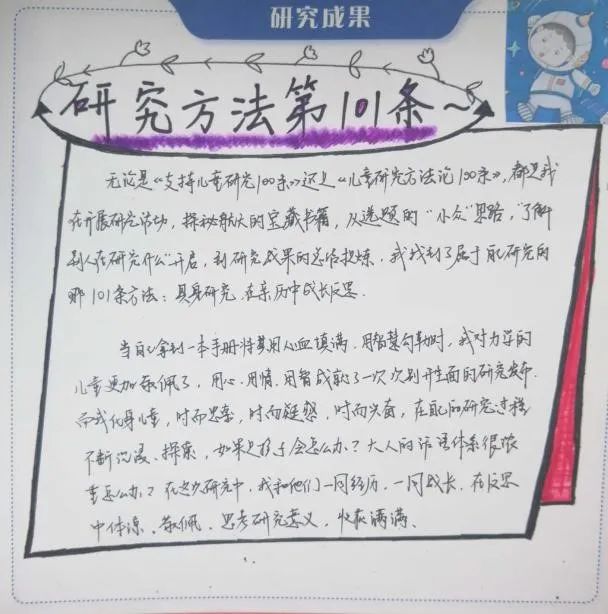 研究成果
研究方法第101条~
无论是《支持儿童研究100条》还是《儿童研究方法论100条》,都是我
在开展研究活动,探秘航天的宝藏书籍,从选题的“小众”思路,“了解
别人在研究什么”开启,到研究成果的总结提炼,我找到了属于自己研究的
那101条方法:具身研究,在亲历中成长反思.
当自己拿到一本手册将其用心血填满,用智慧勾勒时,我对力学的
儿童更加敬佩了,用心、用情、用智成就了一次次别开生面的研究发布.
而我化身儿童,时而思索,时而疑惑,时而兴奋,在自己的研究过程
不断沉浸、探索,如果是孩子会怎么办?大人的话语体系很浓
重怎么办?在这次研究中,我和他们一同经历,一同成长,在反思
中体谅、敬佩、思考研究意义,收获满满.